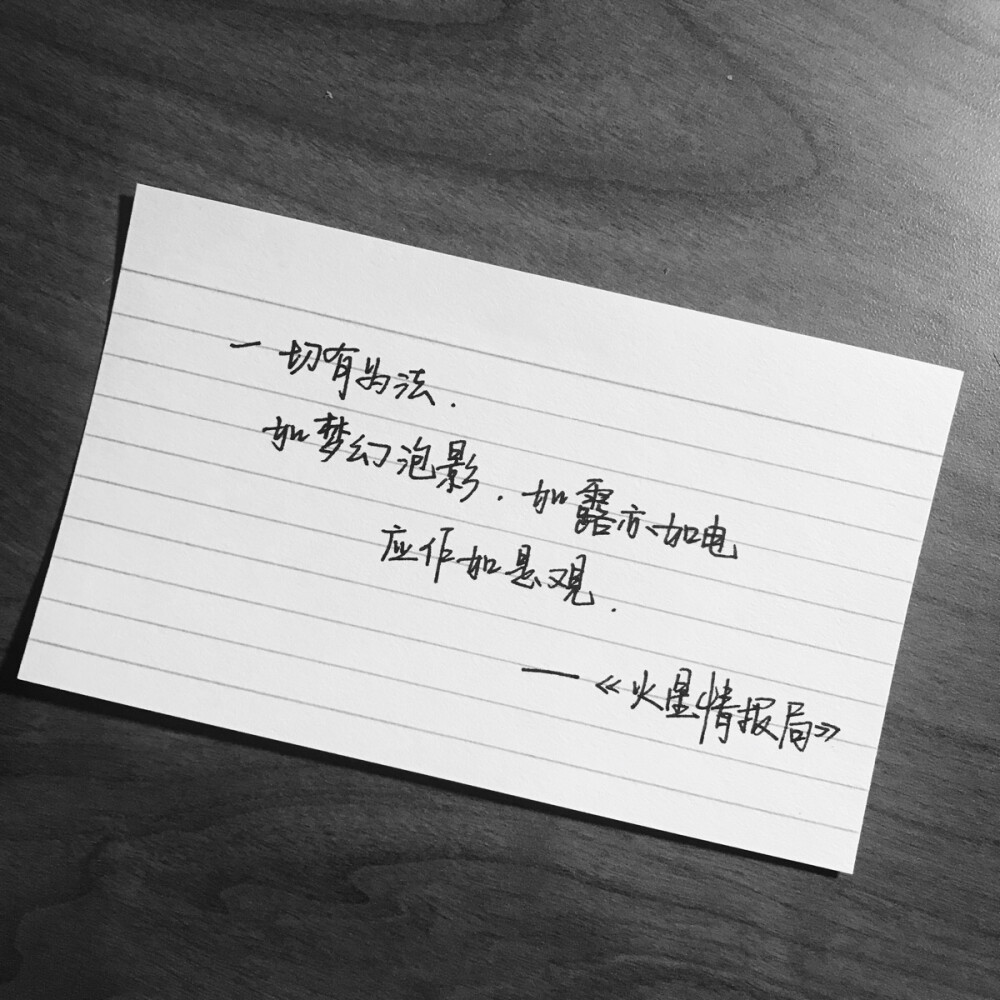 一切有为法.
如梦幻泡影.如露亦如电
应作如是观.
——《火星情报局》